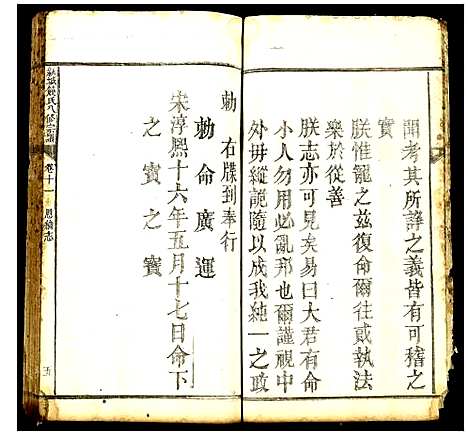 聞考其所諍之義皆有可稽之
實
朕惟寵之茲復命爾往貳執法
樂於從善
朕志亦可見矣易曰大君有命
小人勿用必亂邦也爾謹視中
外毋縱詭隨以成我純一之政
勅
右牒到奉行
勅命廣運
宋淳熙十六年五月十七日命下
之寶之寶
氏八修宗譜
卷十一
恩綸志
五